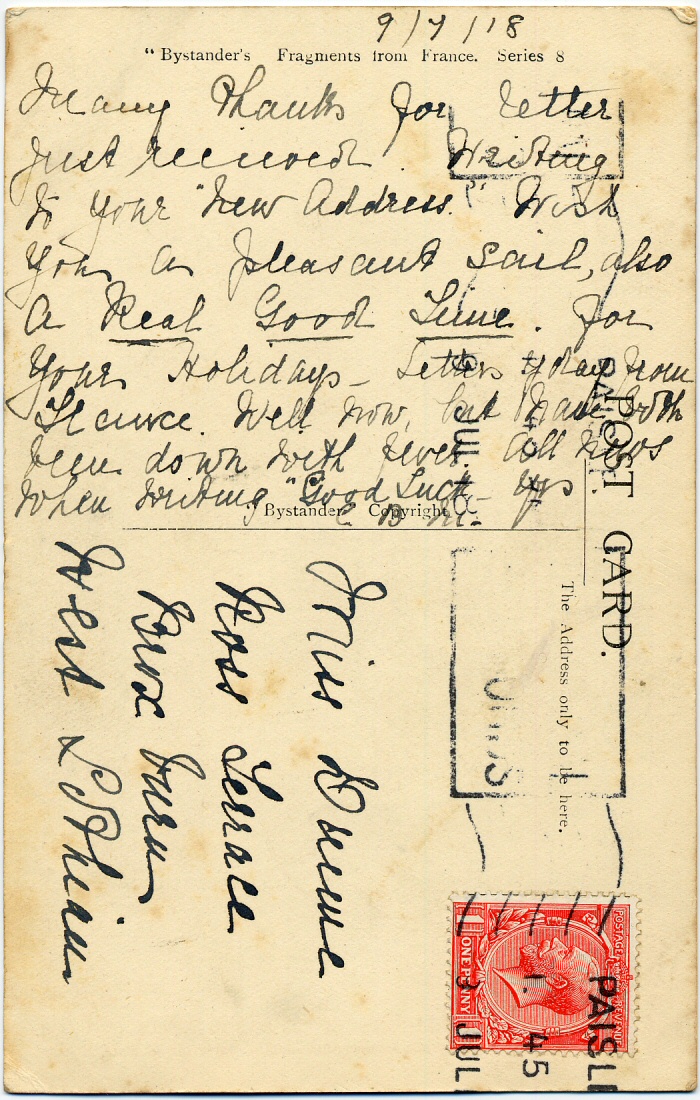 9/7/18
"Bystander's Fragments from France. Series 8
Many Thanks for letter
just received. Writing
to your "New Address." Wish
you a pleasant sail, also
a Real Good Time. for
Your Holidays - Letter y'day from
France. Well now, but have both
been down with fever. All news
when writing "Good Luck"
"Bystander" Copyright
POST CARD.
The Address only to be here.
Miss Dunne
Ross Terrace
Broxburn
West Lothian
POSTAGE REVENUE
ONE PENNY
PAISL
1. 45
9 JUL